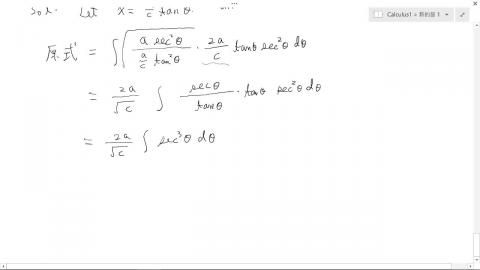 Sol. Let x = — c tan θ. ...
Calculus1 » 新的版 1
原式 = ∫ √(a sec²θ / (a/c tan²θ)) · 2a/c tanθ sec²θ dθ
= 2a/√c ∫ secθ/tanθ · tanθ sec²θ dθ
= 2a/√c ∫ sec³θ dθ